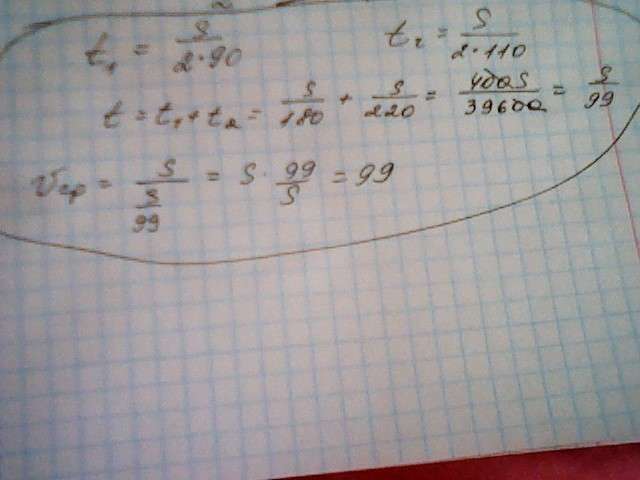 t₁ = S/(2·90) t₂ = S/(2·110)
t = t₁ + t₂ = S/180 + S/220 = 400S/39600 = S/99
vср = S/(S/99) = S · 99/S = 99